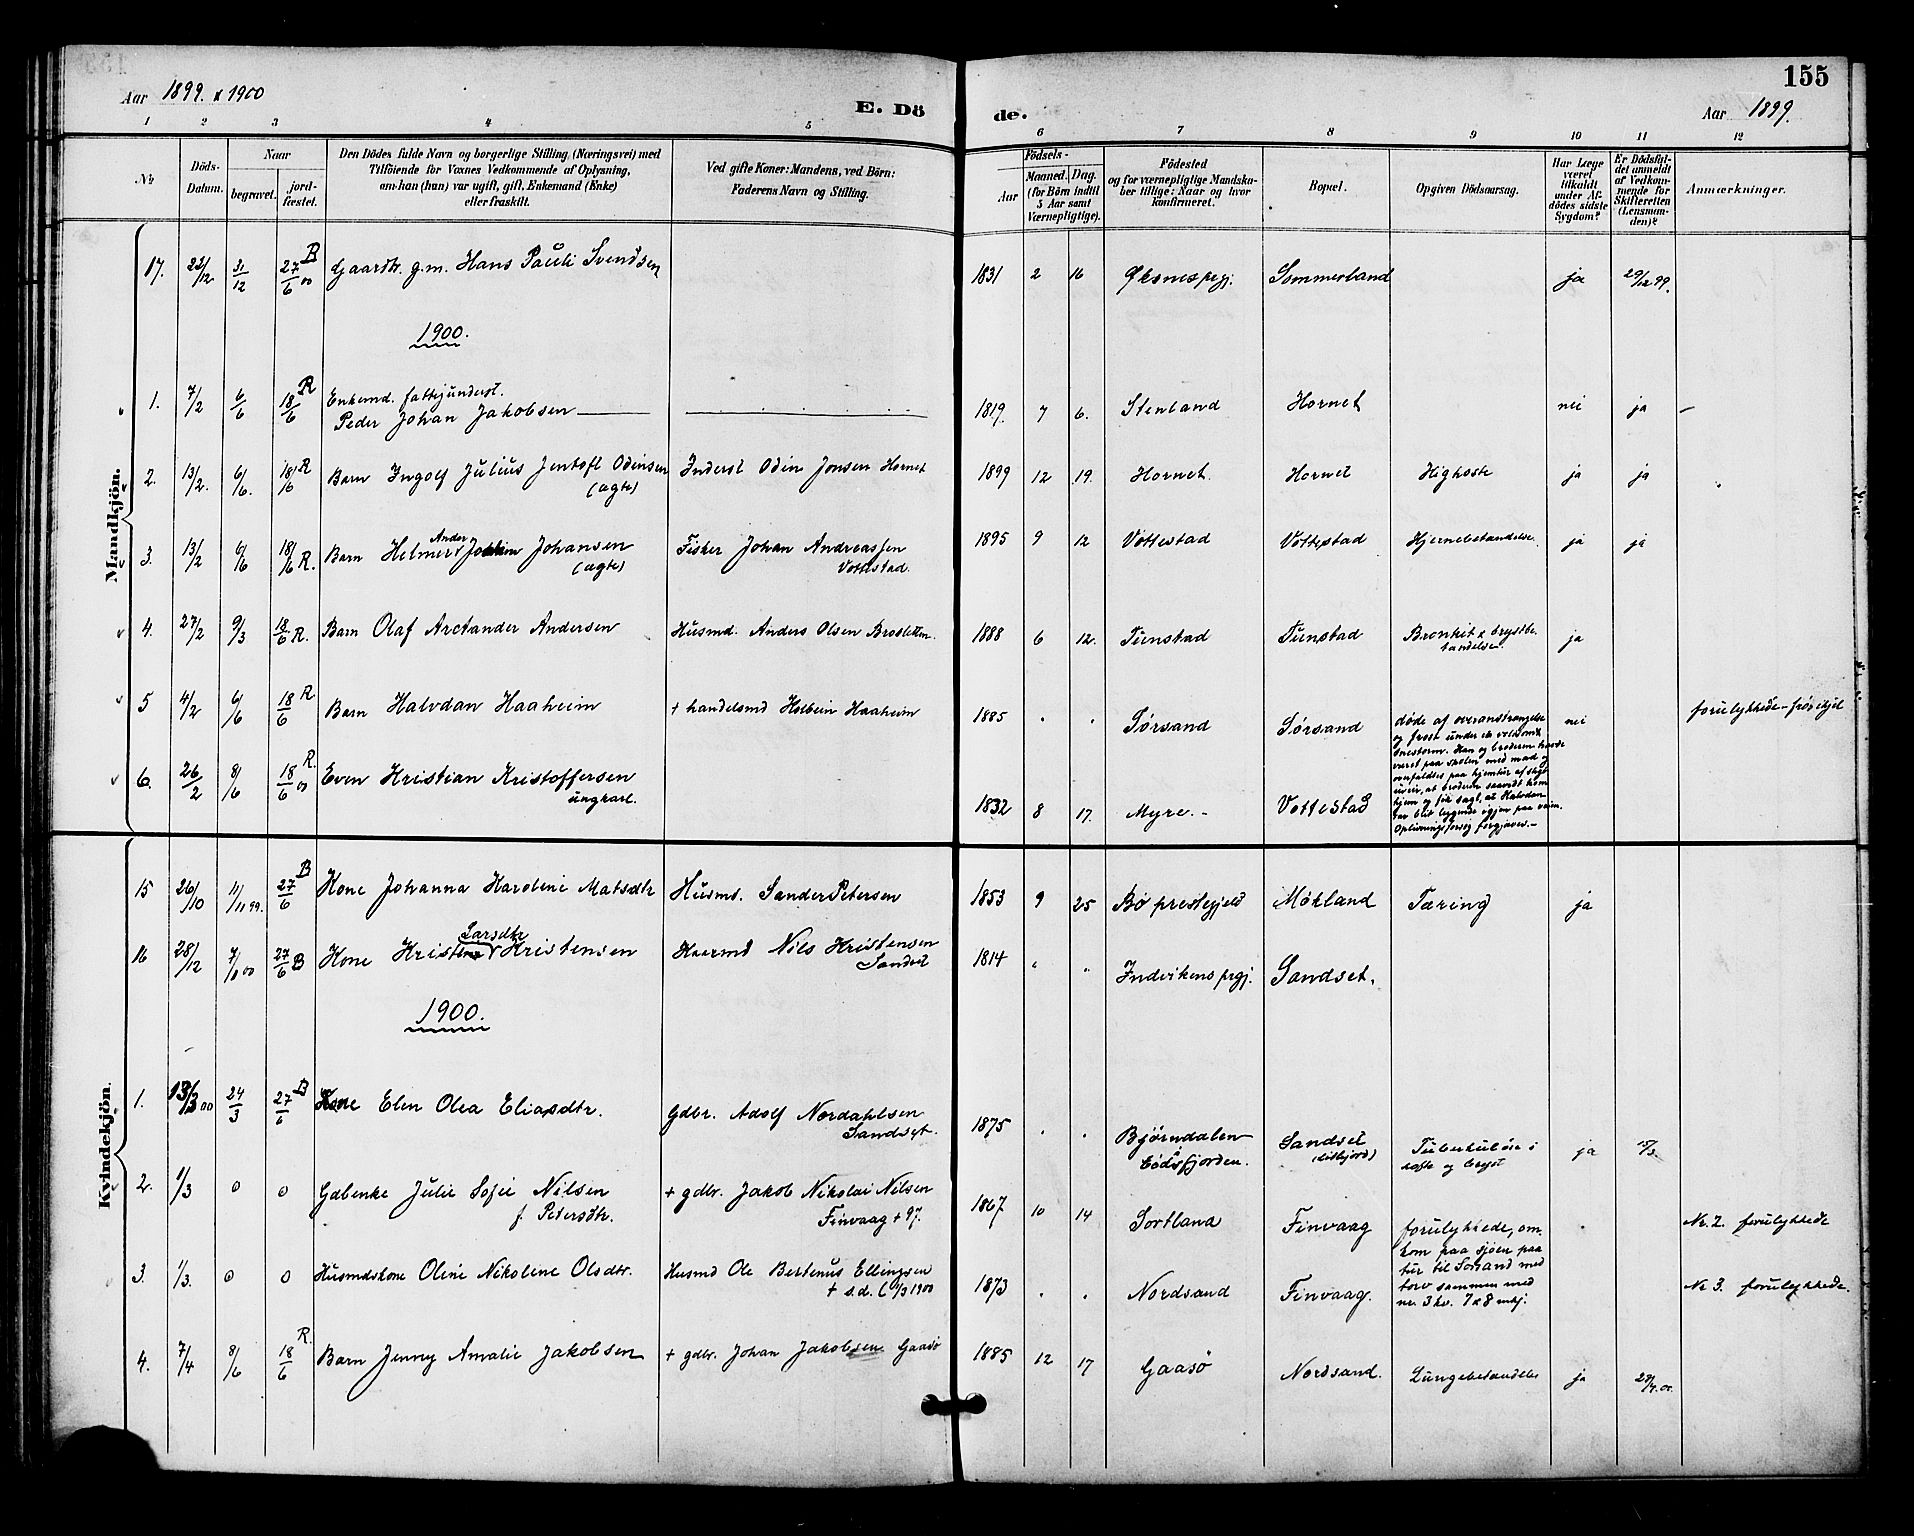 155
Aar 1899. & 1900
E. Dö
de.
Aar 1899.
1 2 3 4 5 6 7 8 9 10 11 12
No
Döds-
Datum.
Naar
begravet.
jord-
fæstet.
Den Dödes fulde Navn og borgerlige Stilling (Næringsvei) med
Tilföiende for Voxnes Vedkommende af Oplysning,
om han (hun) var ugift, gift, Enkemand (Enke)
eller fraskilt.
Ved gifte Koner: Mandens, ved Börn:
Faderens Navn og Stilling.
Födsels-
Aar
Maaned. Dag.
(for Börn indtil
5 Aar samt
Værnepligtige).
Födested
og for værnepligtige Mandska-
ber tillige: Naar og hvor
konfirmeret.
Bopæl.
Opgiven Dödsaarsag.
Har Læge
været
tilkaldt
under Af-
dödes sidste
Sygdom?
Er Dödsfal-
det anmeldt
af Vedkom-
mende for
Skifteretten
(Lensman-
den)?
Anmærkninger.
Mandkjön.
17. 22/12 31/12 27/6 00 B Gaardbr. g.m. Hans Pauli Svendsen 1831 2 16 Øksnes prgj. Sommerland ja 29/12 99.
1900.
1. 7/2 6/6 18/6 R Enkemd. fattigunderst.
Peder Johan Jakobsen 1819 7 6. Stenland Hornet nei ja
2. 13/2. 6/6. 18/6 R Barn Ingolf Julius Jentoft Odinsen Inderst Odin Jonsen Hornet 1899 12 19. Hornet. Hornet Kighoste ja ja
(ægte)
3. 13/2 6/6 18/6 R. Barn Helmer Ander Johansen Fisker Johan Andreassen 1895 9 12 Vottestad Vottestad Hjernebetændelse. ja ja
(ægte) Vottestad.
4. 27/2 9/3 18/6 R. Barn Olaf Arctander Andersen Husmd. Anders Olsen Brosletten. 1888 6 12. Tunstad Tunstad Bronkit & brystbe-
tændelse. ja
5 4/2 6/6 18/6 R. Barn Halvdan Haaheim + handelsmd Holbein Haaheim 1885 Sørsand Sørsand nei forulykkede - frøs ihjel
døde af overanstrængelse
og frost under en voldsom
snestorm. Han og broderen havde
været paa skolen med mad og
overfaldtes paa hjemtur af sligt
uveir, at broderen saavidt kom
hjem og fik sagt, at Halvdan
var blit liggende igjen paa veien.
Oplivningsforsøg forgjæves.-
6. 26/2 8/6 18/6 00 R. Even Kristian Kristoffersen
ungkarl. 1832 8 17. Myre.- Vottestad
Kvindekjön.
15 26/10 11/11 99. 27/6 B Kone Johanna Karoline Matsdtr Husmd. Sander Petersen 1853 9 25 Bø prestegjeld Møkland Tæring ja
16 28/12 7/1 00 27/6 B Kone Kristine Larsdtr Kristensen Kaarmd Nils Kristensen
Sandset 1814 Indvikens prgj. Sandset.
1900.
1. 13/3 00 24/3 27/6 B Kone Elen Olea Eliasdtr. Gdbr. Adolf Nordahlsen
Sandset. 1875 Bjørndalen
Eidsfjorden. Sandset Tuberkulose i
og bryst ja 15/3.
2. 1/3 0 0 Gdbenke Julie Sofie Nilsen + gdbr. Jakob Nikolai Nilsen
f. Petersdtr. Finvaag + 97. 1867 10 14 Sortland Finvaag Nr. 2. forulykkede
forulykkede, om-
kom paa sjøen paa
tur til Sørsand med
torv sammen med
nr. 3 kv. 7 & 8 mkj.
3. 1/3. 0 0 Husmdskone Oline Nikolene Olsdtr. Husmd Ole Bertenus Ellingsen
+ s.d. (1/3 1900 1873 Nordsand Finvaag. Nr 3. forulykkede.
4. 7/4 8/6 18/6 R. Barn Jenny Amalie Jakobsen + gdbr. Johan Jakobsen Gaasø 1885 12 17 Gaasø Nordsand. Lungebetændelse ja